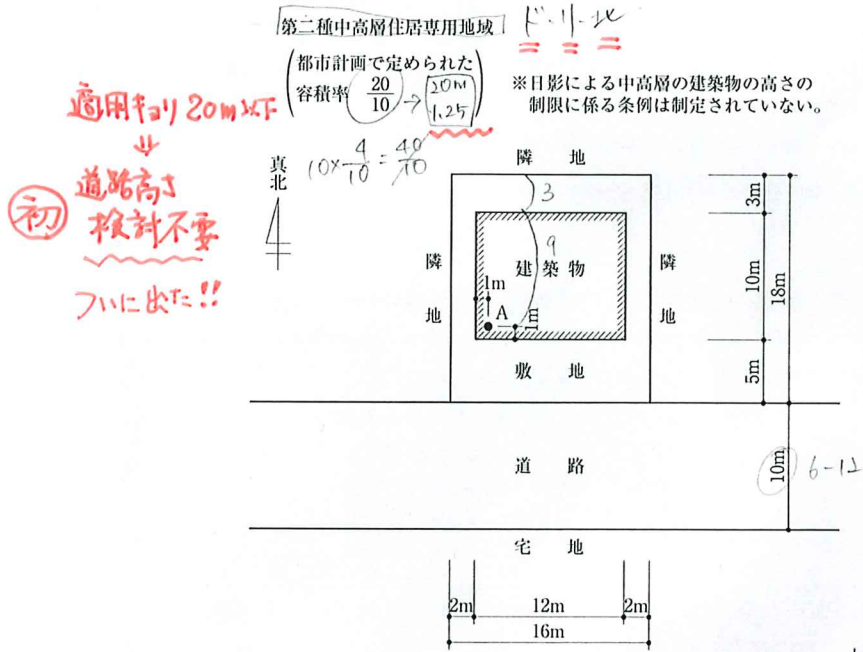 第二種中高層住居専用地域
ド・リ・北
(都市計画で定められた
容積率 20/10) → 20m
1.25
※日影による中高層の建築物の高さの
制限に係る条例は制定されていない。
適用キョリ 20m以下
⇓
道路高さ
検討不要
初
ついに出た!!
10×4/10=40/10
真北
隣 地
3
3m
9
建 築 物
隣
地
隣
地
1m
A
1m
10m
18m
敷 地
5m
道 路
10m
6-12
宅 地
2m
12m
2m
16m